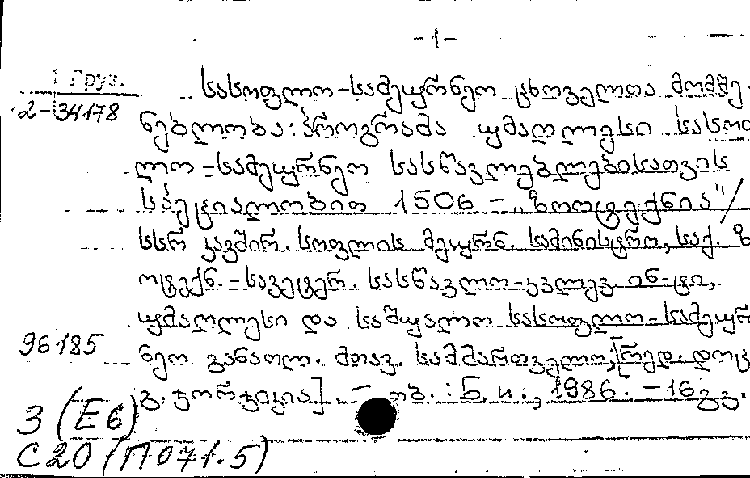 -1-
Груз.
2-34178
სასოფლო-სამეურნეო ცხოველთა მომშე-
ნებლობა: პროგრამა უმაღლესი სასოფ
ლო-სამეურნეო სასწავლებლებისათვის
სპეციალობით 1506 - „ზოოტექნია"/
სსრ კავშირ. სოფლის მეურნ. სამინისტრო, საქ. ზ
ოტექნ.-სავეტერ. სასწავლო-კვლევ. ინ-ტი,
უმაღლესი და საშუალო სასოფლო-სამეურ
ნეო განათლ. მთავ. სამმართველო; [რედ. დოც.
96185
გ. ჯორჯიკია]. - თბ. : ნ. ი., 1986. - 16 გვ.
3 (Е6)
С20 (П071.5)